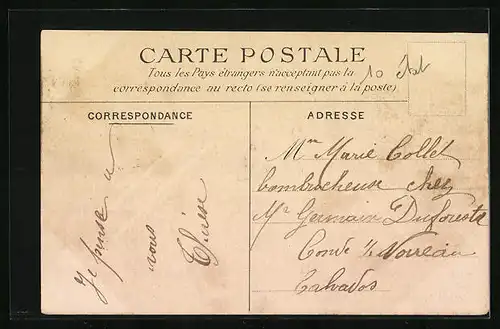 CARTE POSTALE
Tous les Pays étrangers n'acceptent pas la
correspondance au recto (se renseigner à la poste)
10
CORRESPONDANCE
ADRESSE
Je pense a
vous
Mme Marie Collet
chez
Mr Germain Duforestz
Condé s/ Noireau
Calvados